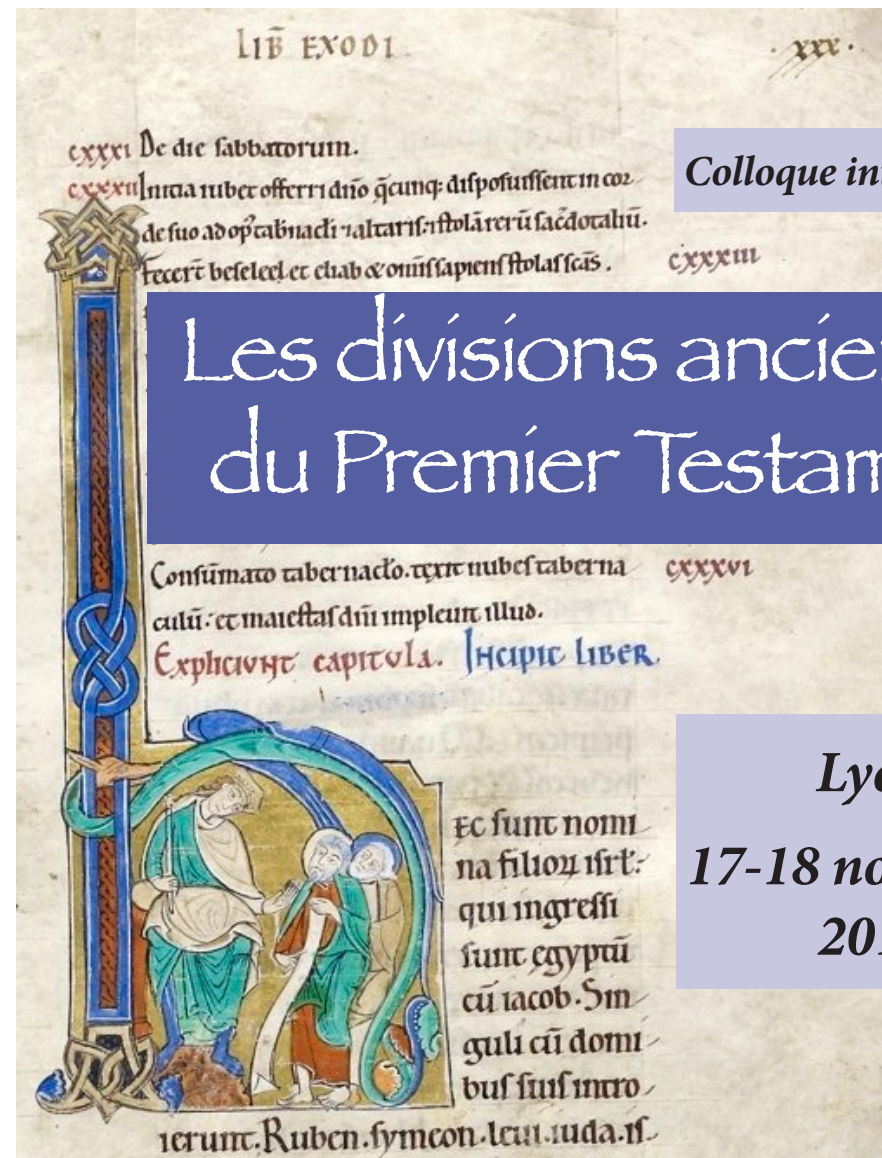 LIB̄ EXODI
· xxx ·
cxxxi De die sabbatorum.
cxxxii Inicia iubet offerri dn̄o q̄cunq; disposuissent in cor
Colloque in
de suo ad op̄ tab̄nacłi ⁊ altaris: ⁊ stolā rerū sac̄dotaliū.
Fecer̄t beseleel et eliab & om̄is sapiens stolas sc̄as. cxxxiii
Les divisions ancie
du Premier Testam
Consūmato tabernacło. texit nubes taberna cxxxvi
culū: et maiestas dn̄i impleuit illud.
Expliciunt capitula. Incipit liber.
Ly
17-18 no
20
EC sunt nomi
na filioꝝ isrł:
qui ingressi
sunt egyptū
cū iacob. Sin
guli cū domi
bus suis intro
ierunt. Ruben. symeon. leui. iuda. is